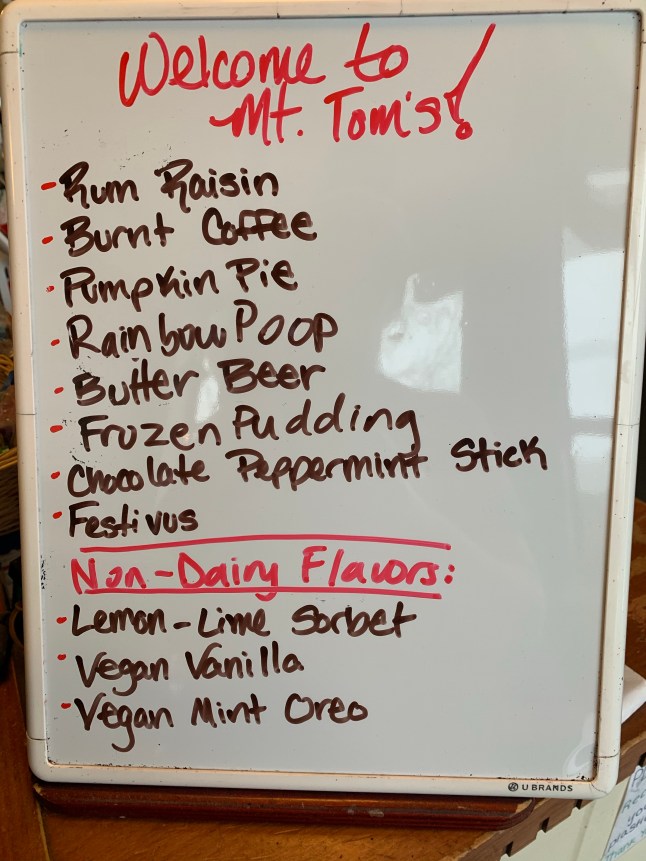 Welcome to
Mt. Tom's!
- Rum Raisin
- Burnt Coffee
- Pumpkin Pie
- Rainbow Poop
- Butter Beer
- Frozen Pudding
- Chocolate Peppermint Stick
- Festivus
Non-Dairy Flavors:
- Lemon-Lime Sorbet
- Vegan Vanilla
- Vegan Mint Oreo
U BRANDS